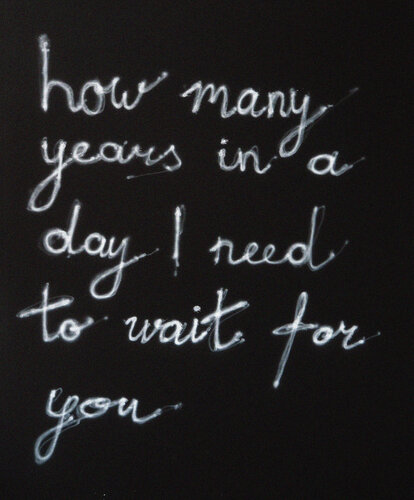 how many
years in a
day I need
to wait for
you